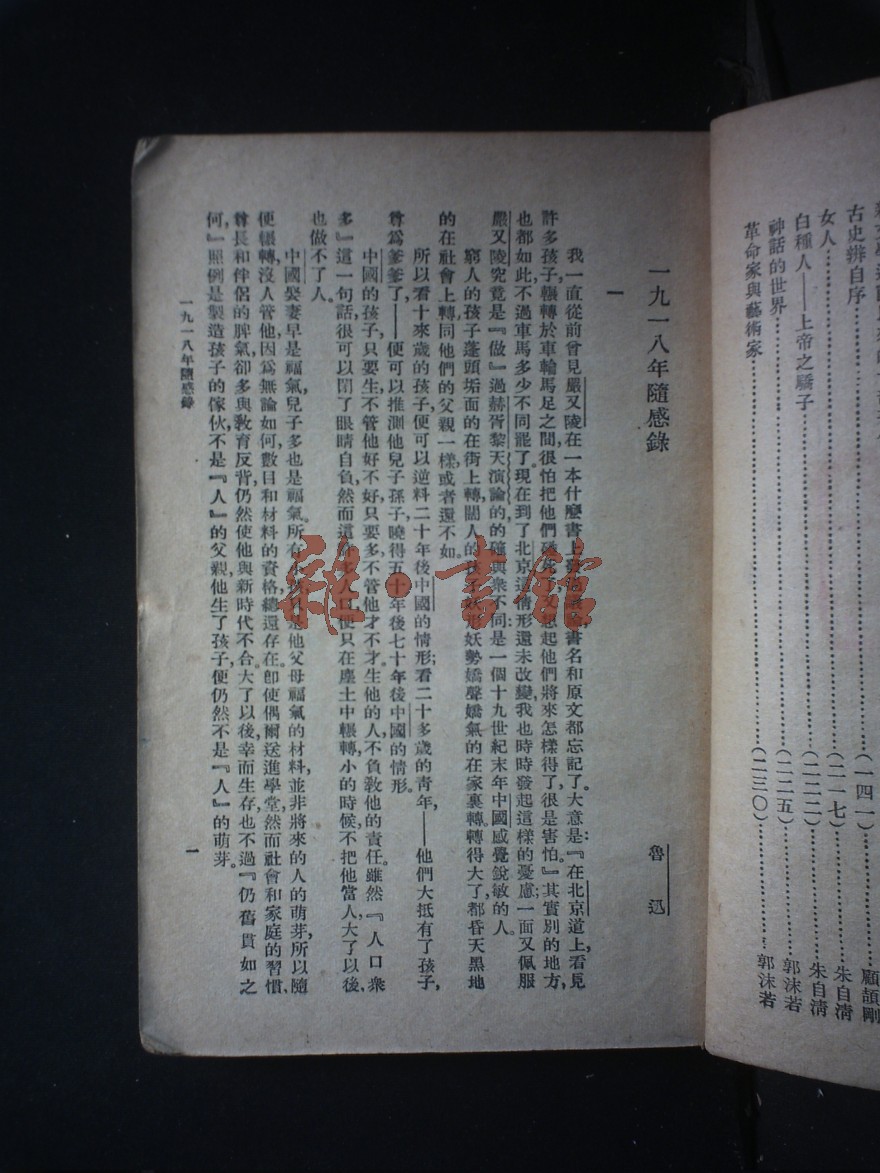 古史辨自序……………………(一四一)……………顧頡剛
女人……………………(二一七)……………朱自清
白種人——上帝之驕子……………………(二二二)……………朱自清
神話的世界……………………(二二五)……………郭沫若
革命家與藝術家……………………(二三〇)……………郭沫若
一九一八年隨感錄
魯迅
一
我一直從前曾見嚴又陵在一本什麼書上發過議論書名和原文都忘記了。大意是:『在北京道上,看見
許多孩子,輾轉於車輪馬足之間,很怕把他們碰死了,又想起他們將來怎樣得了,很是害怕』其實別的地方,
也都如此,不過車馬多少不同罷了。現在到了北京,這情形還未改變,我也時時發起這樣的憂慮;一面又佩服
嚴又陵究竟是『做』過赫胥黎天演論的,的確與衆不同:是一個十九世紀末年中國感覺銳敏的人。
窮人的孩子蓬頭垢面的在街上轉,闊人的孩子妖形妖勢嬌聲嬌氣的在家裏轉。轉得大了,都昏天黑地
的在社會上轉,同他們的父親一樣,或者還不如。
所以看十來歲的孩子,便可以逆料二十年後中國的情形;看二十多歲的青年,——他們大抵有了孩子,
尊爲爹爹了——便可以推測他兒子孫子,曉得五十年後七十年後中國的情形。
中國的孩子,只要生,不管他好不好,只要多,不管他才不才。生他的人,不負教他的責任。雖然『人口衆
多』這一句話,很可以閉了眼睛自負,然而這許多人口,便只在塵土中輾轉,小的時候,不把他當人,大了以後,
也做不了人。
中國娶妻早是福氣,兒子多也是福氣。所有小孩,只是他父母福氣的材料,並非將來的人的萌芽,所以隨
便輾轉,沒人管他,因爲無論如何,數目和材料的資格,總還存在。即使偶爾送進學堂,然而社會和家庭的習慣,
尊長和伴侶的脾氣,卻多與教育反背,仍然使他與新時代不合。大了以後,幸而生存,也不過『仍舊貫如之
何,』照例是製造孩子的傢伙,不是『人』的父親,他生了孩子,便仍然不是『人』的萌芽。
一九一八年隨感錄
一
雜·書館